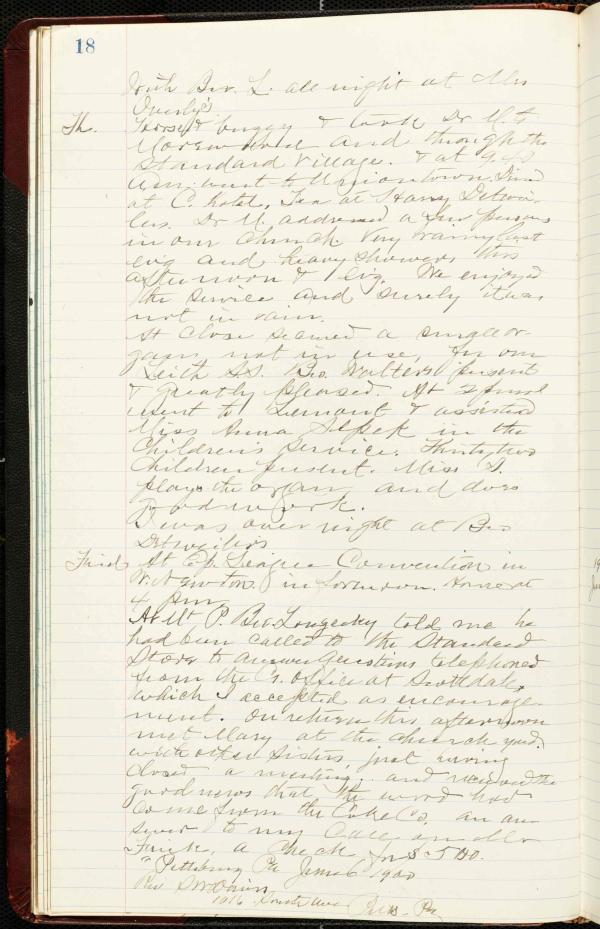 18
with Bro. L. all night at Mrs
Overly's
Th. Horse & buggy & took Dr. U. to
Morewood and through the
Standard Village. & at 9.40
a.m. went to Uniontown. Dined
at C. hotel, Tea at Harry Detwi-
lers. Dr U. addressed a few persons
in our Church. Very rainy last
evig and heavy showers this
afternoon & evig. We enjoyed
the service and surely it was
not in vain.
At close seamed a single or-
gan, not in use, for our
Leith S.S. Bro. Walters present
& greatly pleased. At
went to Lemont & assisted
Miss Anna in the
Children's Service. Thirty two
Children present. Miss
plays the organ and does
good work.
I was over night at Bro
Detweilers
Frid. At Ep. League Convention in
W. Newton. in forenoon. Home at
4 p.m.
At Mt P. Bro. Longecky told me he
had been called to the Standard
Store to answer questions telephoned
from the Co. office at Scottdale,
which I accepted as encourage-
ment. On return this afternoon
met Mary at the church yard.
with other sisters, just having
closed a meeting, and received the
good news that the word had
come from the Coke Co. an an-
swer to my call on Mr
Frick, a check for $500.
"Pittsburg Pa June 6 1900
Rev
1016 South Ave Pa